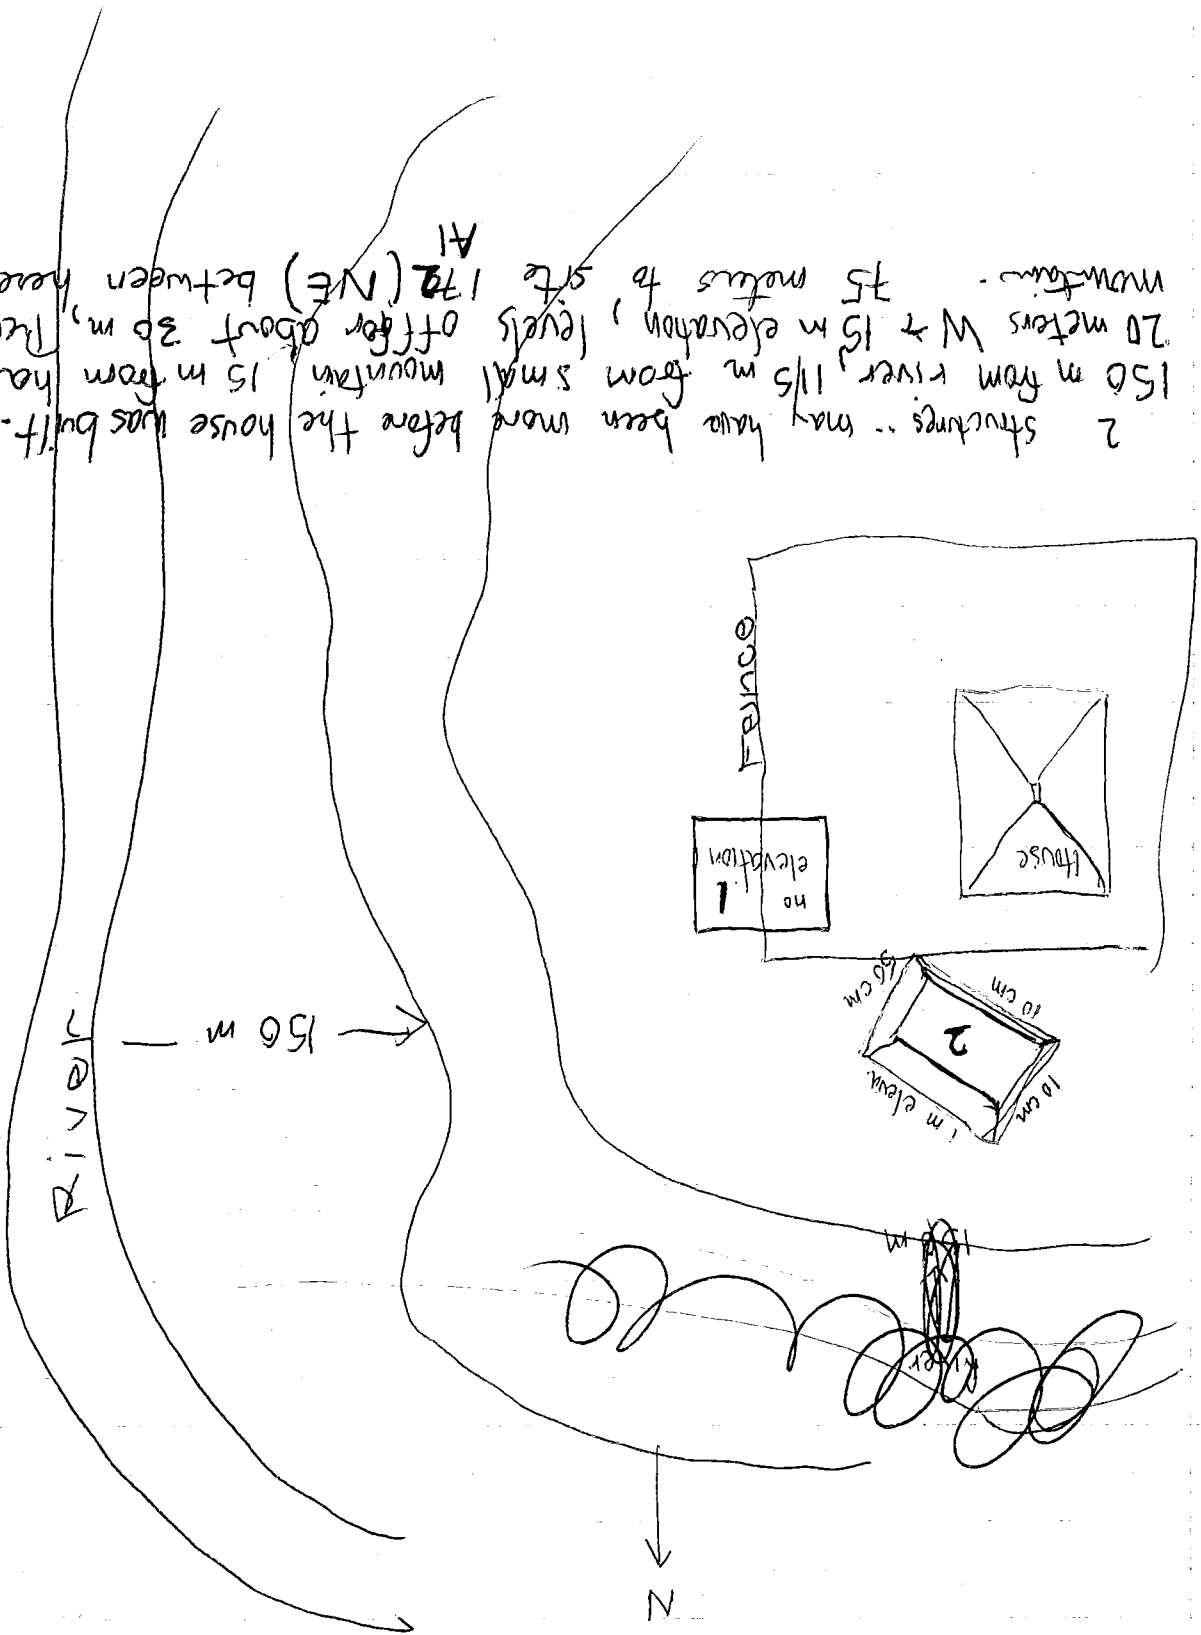 N
15 m
River
1 m eleva.
10 cm
2
10 cm
50 cm
150 m
River
House
no
elevation
1
Fence
2 structures; may have been more before the house was built.
150 m from river, 11/5 m from small mountain 15 m from
20 meters W 15 m elevation, levels off for about 30 m,
mountain. 75 meters to site 172 (NE) between here
A1